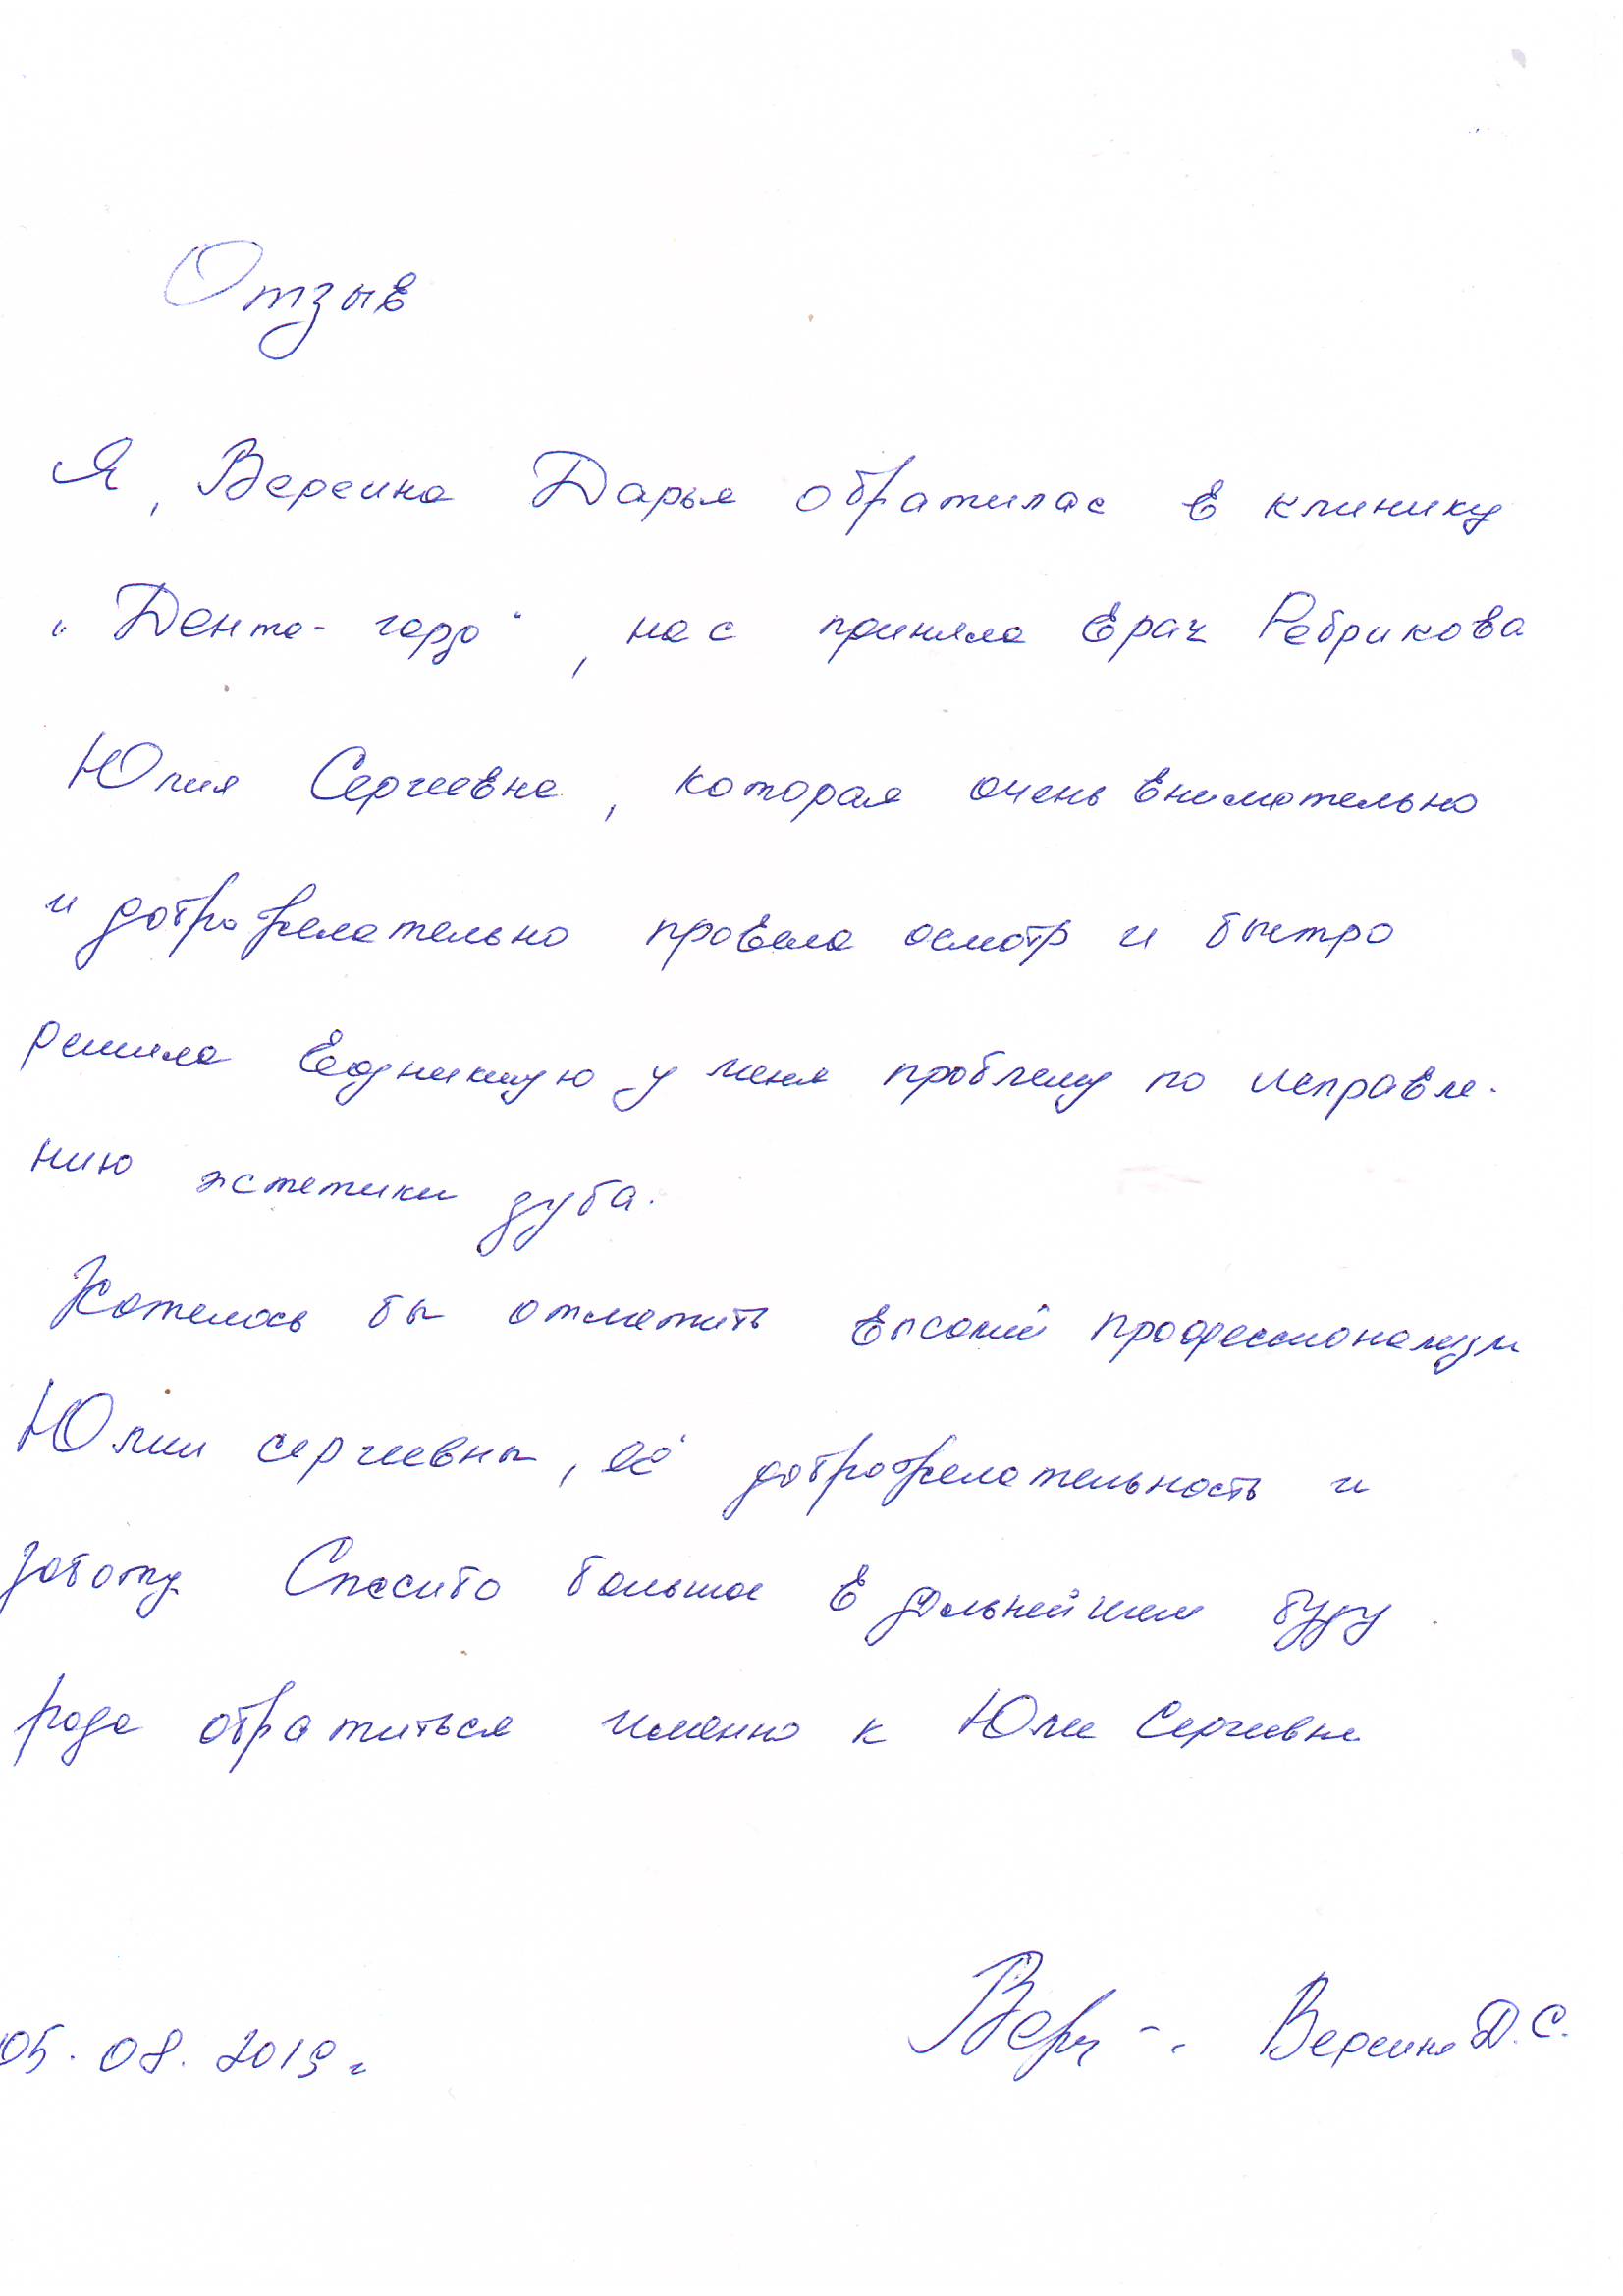 Отзыв
Я, Вереина Дарья обратилас в клинику
"Дента-гард", нас приняла врач Ребрикова
Юлия Сергеевна, которая очень внимательно
и доброжелательно провела осмотр и быстро
решила возникшую у меня проблему по исправле-
нию эстетики зуба.
Хотелось бы отметить высокий профессионализм
Юлии Сергеевны, её доброжелательность и
заботу Спасибо большое В дальнейшем буду
рада обратиться именно к Юлие Сергеевне
05.08.2019г Вереина Д.С.